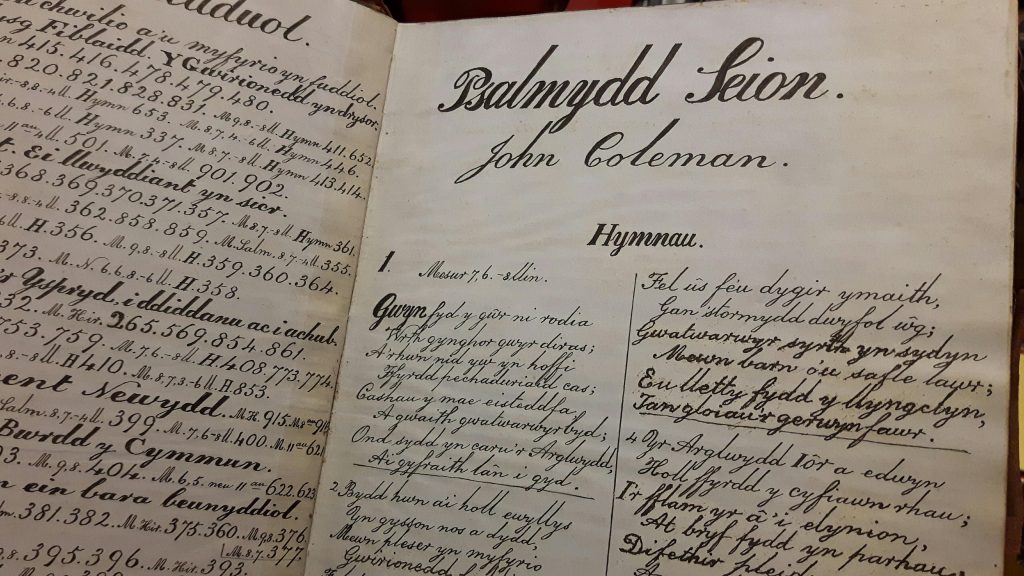 dduol.
chwilio a'u myfyrio yn fuddiol.
Y Gwirionedd yn drysor.
415. 416. 478. 479. 480.
820. 821. 828. 831. M. 9.8.-8ll. Hymn 411. 652.
Hymn 653. M. 8.7.4.-6ll. Hymn 446.
Hymn 337. M. 8.7.-8ll. Hymn 413. 414.
501. M. 7.4.-8ll. 901. 902.
Ei llwyddiant yn sicr.
368. 369. 370. 371. 357. M. 8.7.-8ll. Hymn 361.
362. 858. 859. M. Salm. 8.7.-4ll. 355.
H. 356. M. 9.8.-8ll. H. 359. 360. 364.
373. M. N. 6.6.8.-6ll. H. 358.
Yspryd, i ddiddanu ac i achub.
M. Hir. 265. 569. 854. 861.
753. 759. M. 7.6.-8ll. H. 408. 773. 774.
H 410. M. 8.7.3.-6ll. H 853.
Newydd. M. H. 915.
Salm. 8.7.-4ll. 399. M. 7.6-8ll. 400. M. 11au 621
Bwrdd y Cymmun.
M. 9.8. 404. M. 6,5. neu 11au 622. 623
ein bara beunyddiol.
381. 382. M. Hir. 375. 360. M. 9.8. 376.
M. 8.7. 377.
395. 396. M. Hir. 393.
Psalmydd Seion.
John Coleman.
Hymnau.
1. Mesur 7,6.-8llin.
Gwyn fyd y gŵr ni rodia
Wrth gynghor gwyr diras;
A'r hwn nid yw'n hoffi
Ffyrdd pechaduriaid cas;
Cashau y mae eisteddfa,
A gwaith gwatwarwyr byd;
Ond sydd yn caru'r Arglwydd,
A'i gyfraith lân i gyd.
2. Bydd hwn a'i holl ewyllys
Yn gysson nos a dydd,
Mewn pleser yn myfyrio
Gwirionedd
Fel ûs féu dygir ymaith,
Gan stormydd dwyfol ŵg;
Gwatwarwyr syrth yn sydyn
Mewn barn o'u safle
Eu lletty fydd y llyngclyn,
Tan gloiau'r gerwyn fawr.
4 Yr Arglwydd Iôr a edwyn
Holl ffyrdd y cyfiawn rhau;
I'r fflam yr â'i elynion,
At bryf fydd yn parhau
Difethir